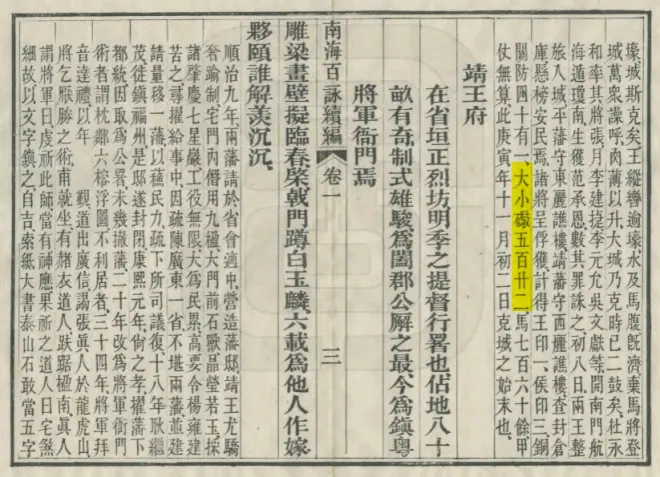 壕,城斯克矣,王縱轡逾壕水及馬腹旣濟棄馬將登
城萬衆讙呼,肉薄以升,大城乃克時已二鼓矣,杜永
和率其將張月,李建捷,李元允,吳文獻等,開南門航
海遁瓊南,生獲范承恩,數其罪誅之,初八日,兩王整
旅入城,平藩守東麗譙樓,靖藩守西麗譙樓,查封倉
庫懸榜安民焉,諸將呈俘獲,計得王印一,侯印三,銅
關防四十有一,大小礮五百廿二,馬七百六十餘,甲
仗無算,此庚寅年十一月初二日克城之始末也,
靖王府
在省垣正烈坊,明季之提督行署也,佔地八十
畝有奇,制式雄駿,爲闔郡公廨之最,今爲鎮粤
將軍衙門焉
南海百詠續編 卷一 三
雕梁畫壁擬臨春,棨戟門蹲白玉麟,六載爲他人作嫁,
夥頤誰解羨沉沉,
順治九年,兩藩請於省會適中,營造藩邸,靖王尤驕
奢踰制,宅門內僭用九戟,大門前石獸晶瑩若玉,採
諸肇慶七星巖,工役無限,大爲民累,高要令楊雍建
苦之,尋擢給事中,因疏陳廣東一省,不堪兩藩並建,
請量移一藩,以蘇民力,疏下所司議復,十八年耿繼
茂徙鎮福州,是邸遂封閉,康熙元年,尙之孝擢藩下
都統,因取爲公署,未幾撤藩,二十年改爲將軍衙門,
術者謂枕鄰六榕浮圖,不利居者,三十四年,將軍拜
音達禮以年 觀,道出廣信,謁張眞人於龍虎山,
將乞厭勝之術,甫就坐,有褚衣道人,趺踞楹南,眞人
謂將軍曰,虔祈此師,當有神應,果祈之,道人曰,宅煞
細故,以文字鎮之自吉,索紙大書泰山石敢當五字